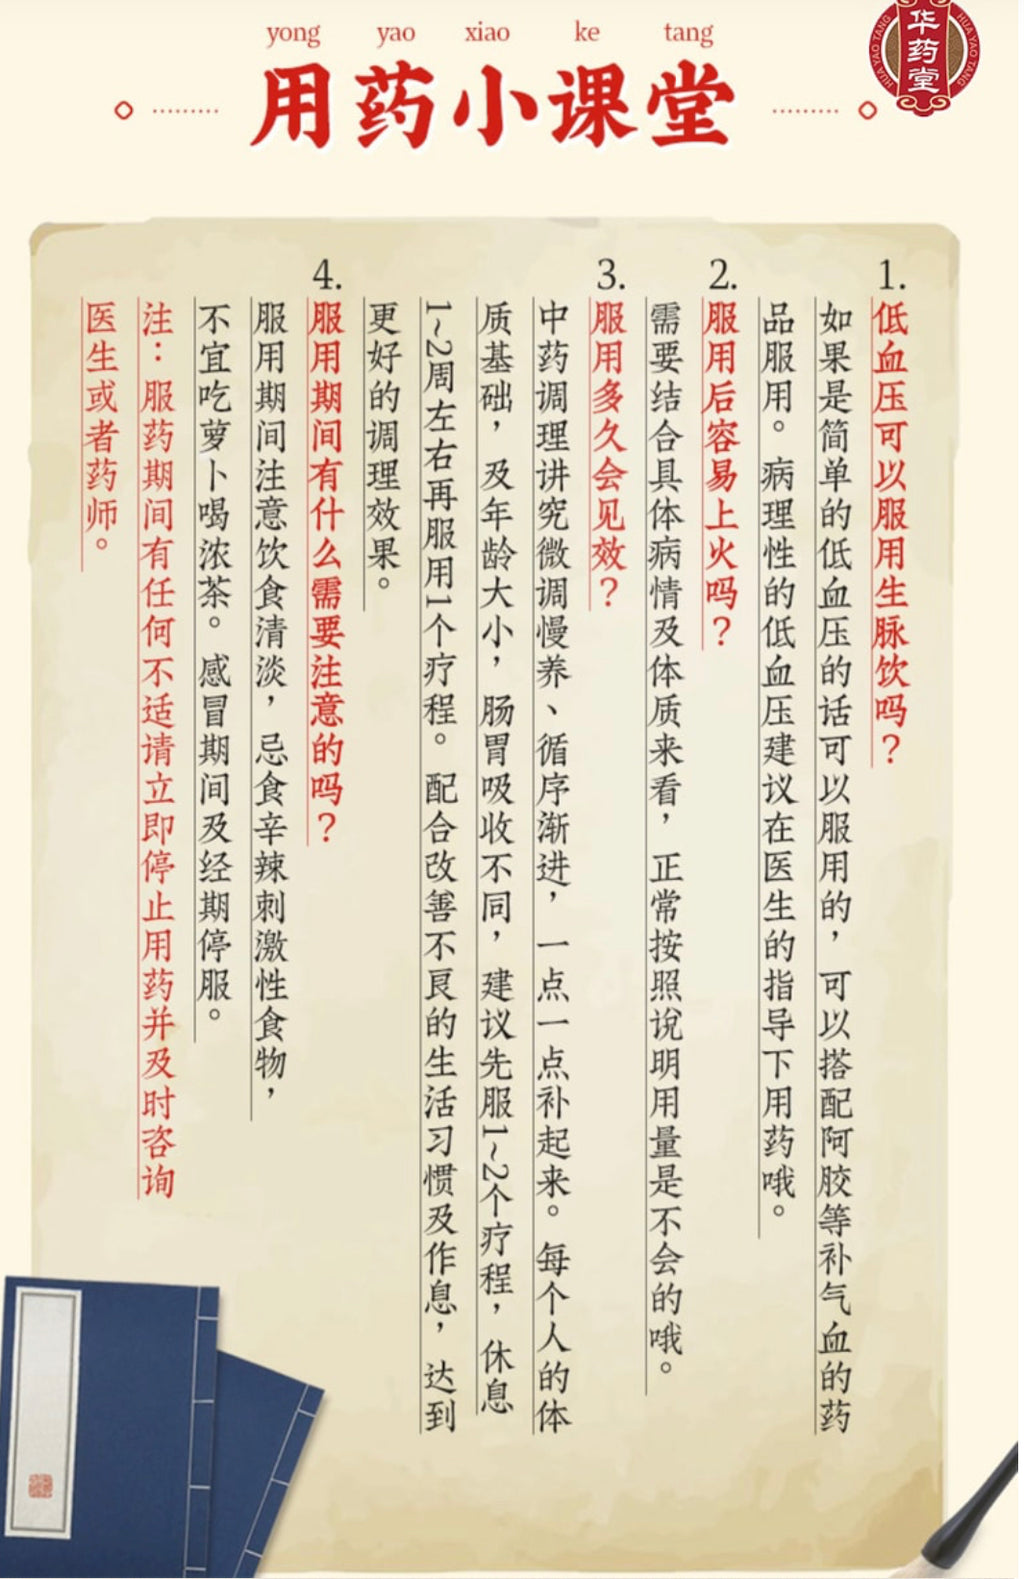 yong yao xiao ke tang
用药小课堂
华药堂
HUA YAO TANG
HUA YAO TANG
1.
低血压可以服用生脉饮吗？
如果是简单的低血压的话可以服用的，可以搭配阿胶等补气血的药
品服用。病理性的低血压建议在医生的指导下用药哦。
2.
服用后容易上火吗？
需要结合具体病情及体质来看，正常按照说明用量是不会的哦。
3.
服用多久会见效？
中药调理讲究微调慢养、循序渐进，一点一点补起来。每个人的体
质基础，及年龄大小，肠胃吸收不同，建议先服1~2个疗程，休息
1~2周左右再服用1个疗程。配合改善不良的生活习惯及作息，达到
更好的调理效果。
4.
服用期间有什么需要注意的吗？
服用期间注意饮食清淡，忌食辛辣刺激性食物，
不宜吃萝卜喝浓茶。感冒期间及经期停服。
注：服药期间有任何不适请立即停止用药并及时咨询
医生或者药师。